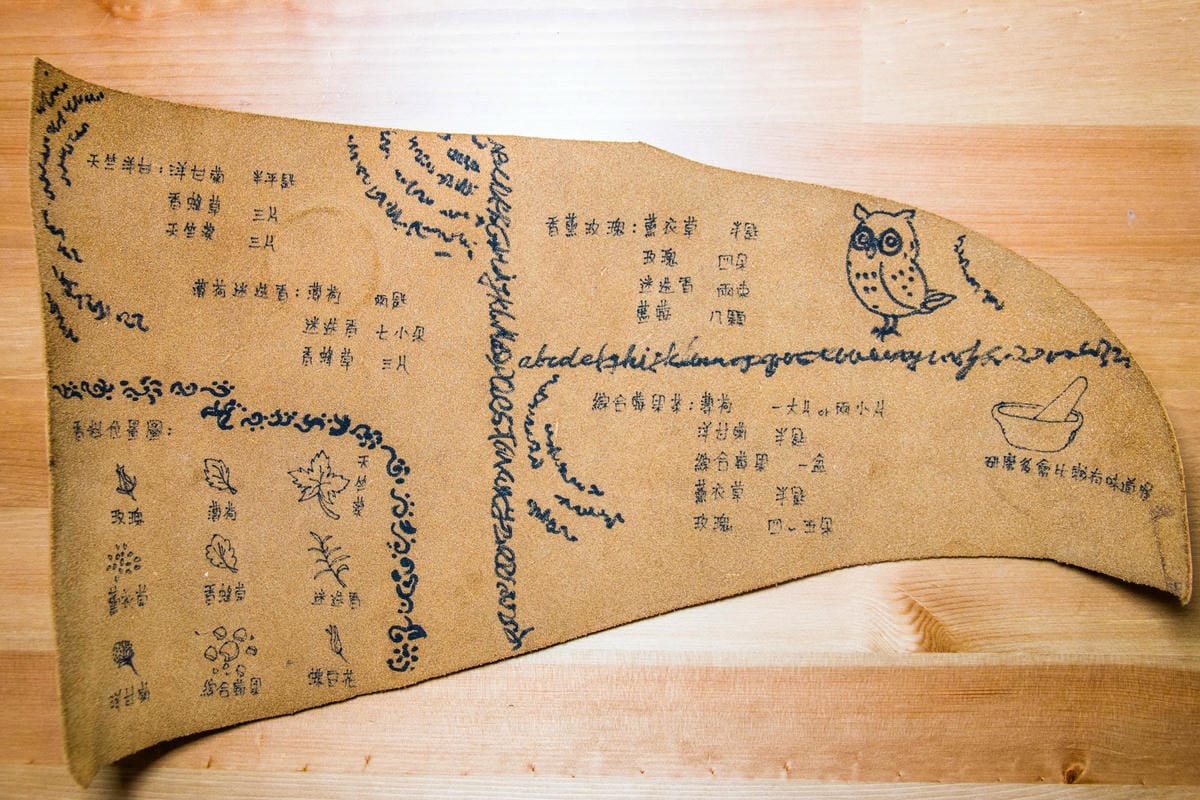 天竺洋甘：洋甘菊 半平匙
香蜂草 三片
天竺葵 三片
薄荷迷迭香：薄荷 兩匙
迷迭香 七小朵
香蜂草 三片
香料位置圖：
玫瑰 薄荷 天竺葵
薰衣草 香蜂草 迷迭香
洋甘菊 綜合莓果
香薰玫瑰：薰衣草 半匙
玫瑰 四朵
迷迭香 兩束
八顆
abcdefghijklmnopqrst
綜合莓果茶：薄荷 一大片or兩小片
洋甘菊 半匙
綜合莓果 一盒
薰衣草 半匙
玫瑰 四~五朵
研磨多會比較有味道喔